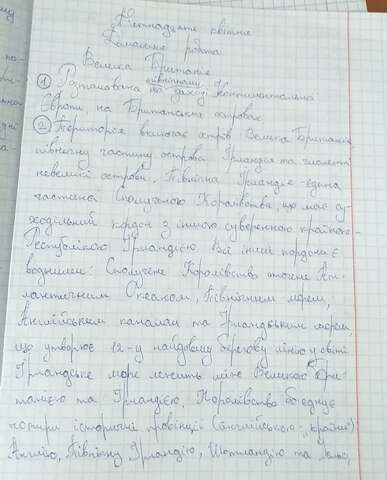 П'ятнадцяте квітня
Домашня робота
Велика Британія
північному
① Розташована на заході континентальної
Європи, на Британських островах.
② Територія включає острів Велика Британія,
північну частину острова Ірландія та численні
невеликі острови. Північна Ірландія - єдина
частина Сполученого Королівства, що має су-
ходільний кордон з іншою суверенною країною -
Республікою Ірландією. Всі інші кордони є
водними: Сполучене Королівство оточене Ат-
лантичним Океаном, Північним морем,
Англійським каналом та Ірландським морем,
що утворює 12-у найдовшу берегову лінію у світі
Ірландське море лежить між Великою Бри-
танією та Ірландією. Королівство об'єднує
чотири історичні провінції (англійською: „країни")
Англію, Північну Ірландію, Шотландію та Уельс,